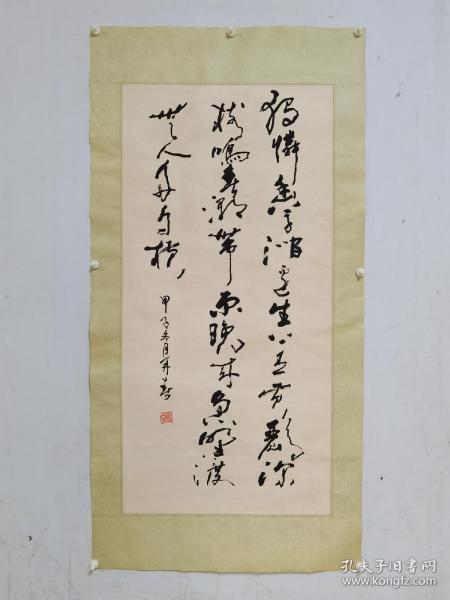 独憐幽草涧边生上有黄鹂深
樹鳴春潮带雨晚来急野渡
無人舟自横
甲子冬月
孔夫子旧书网
www.kongfz.com